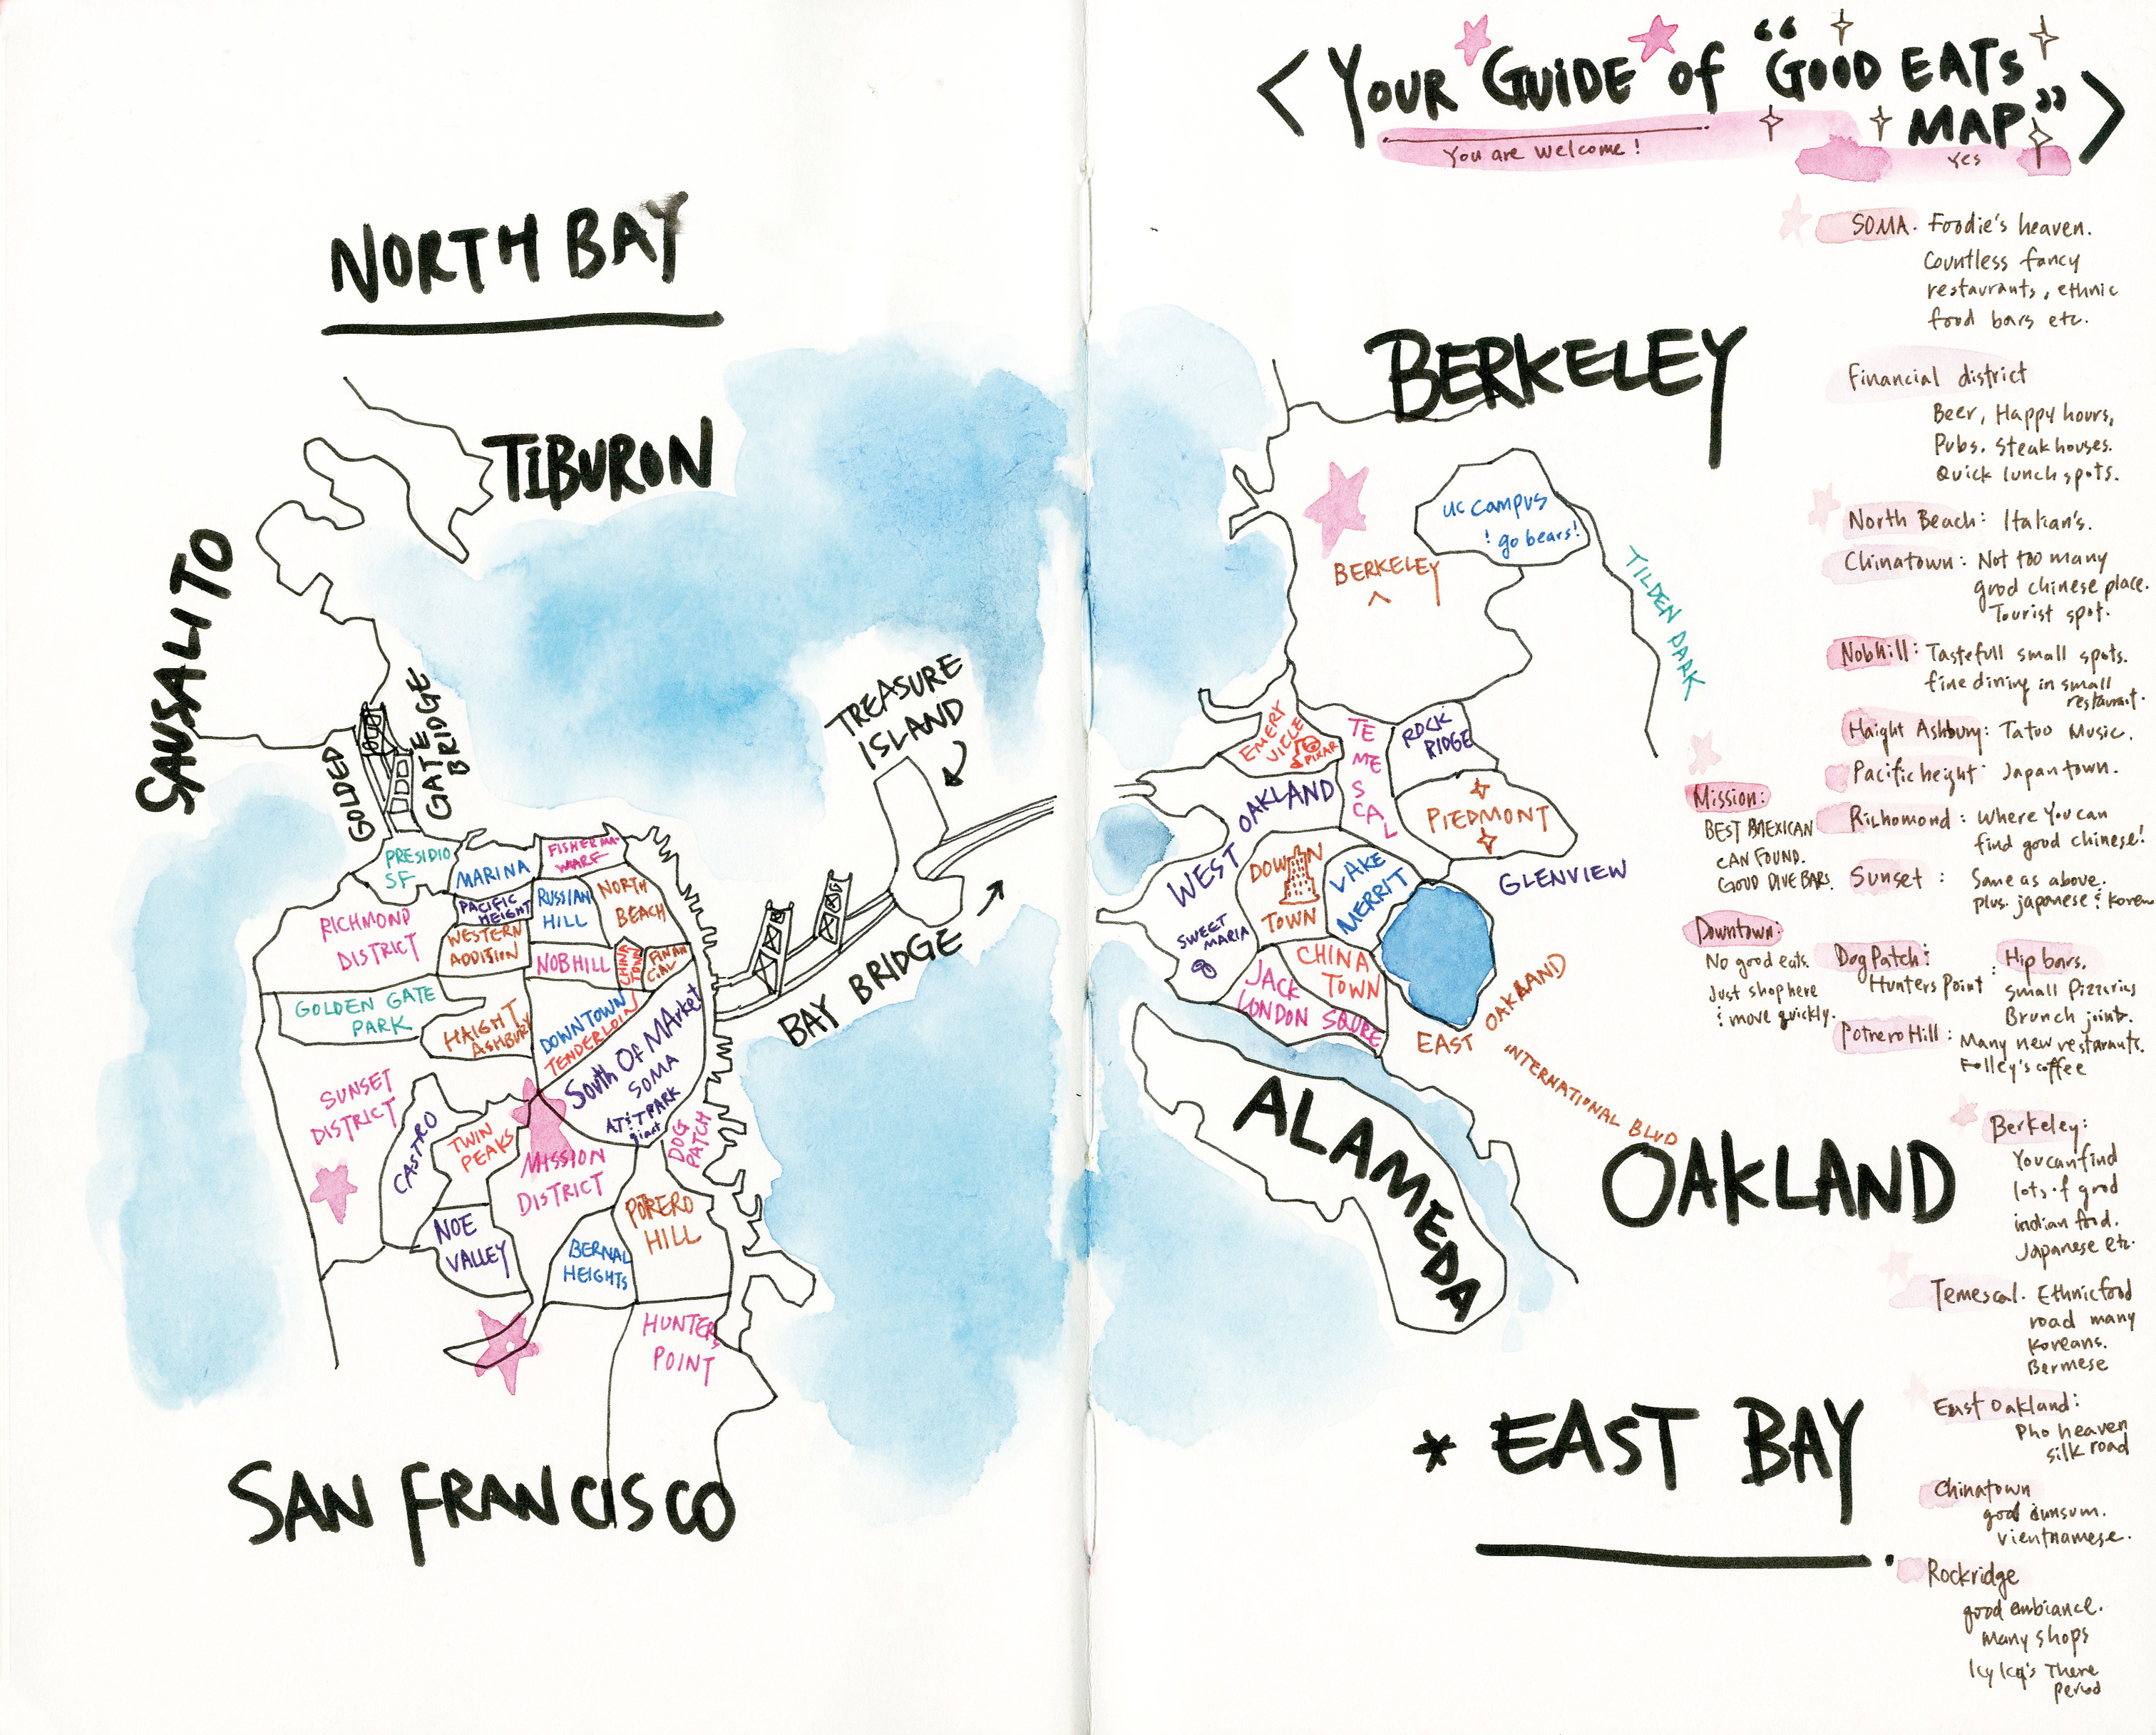 < YOUR GUIDE OF "GOOD EATS
MAP" >
You are welcome!
YES
NORTH BAY
TIBURON
SAUSALITO
GOLDED
GATE
BRIDGE
TREASURE
ISLAND
BAY BRIDGE
PRESIDIO
SF
MARINA
FISHERMA
WARF
PACIFIC
HEIGHT
RUSSIAN
HILL
NORTH
BEACH
RICHMOND
DISTRICT
WESTERN
ADDISION
NOBHILL
CHINA
TOWN
FINAN
CIAL
GOLDEN GATE
PARK
HAIGHT
ASHBURY
DOWNTOWN
TENDERLOIN
South Of MArket
SOMA
AT&T PARK
giant
SUNSET
DISTRICT
CASTRO
TWIN
PEAKS
MISSION
DISTRICT
DOG
PATCH
NOE
VALLEY
BERNAL
HEIGHTS
POTRERO
HILL
HUNTERS
POINT
SAN FRANCISCO
BERKELEY
UC CAMPUS
! go bears!
BERKELEY
TILDEN PARK
EMERY
VILLE
PIXAR
TE
ME
S
CA
L
ROCK
RIDGE
PIEDMONT
WEST OAKLAND
DOWN
TOWN
LAKE
MERRIT
GLENVIEW
SWEET
MARIA
CHINA
TOWN
JACK
LONDON SQURE
EAST OAKLAND
INTERNATIONAL BLVD
ALAMEDA
OAKLAND
* EAST BAY.
SOMA. Foodie's heaven.
Countless fancy
restaurants, ethnic
food bars etc.
Financial district
Beer, Happy hours,
Pubs. Steakhouses.
Quick lunch spots.
North Beach: Italian's.
Chinatown: Not too many
good chinese place.
Tourist spot.
Nobhill: Tastefull small spots.
fine dining in small
restaurant.
Haight Ashbury: Tatoo Music.
Pacific height Japantown.
Richomond: Where You can
find good chinese!
Sunset: Same as above.
plus. japanese & korean
Mission:
BEST MEXICAN
CAN FOUND.
GOOD DIVE BARS.
Downtown:
No good eats.
Just shop here
& move quickly.
DogPatch:
Hunters Point : Hip bars.
small Pizzerias
Brunch joints.
Potrero Hill: Many new restaraunts.
Folley's coffee
Berkeley:
You can find
lots of good
indian food.
Japanese etc.
Temescal. Ethnic food
road many
Koreans.
Bermese
East Oakland:
Pho heaven
silk road
Chinatown
good dumsum.
vientnamese.
Rockridge
good ambiance.
Many shops
There
period